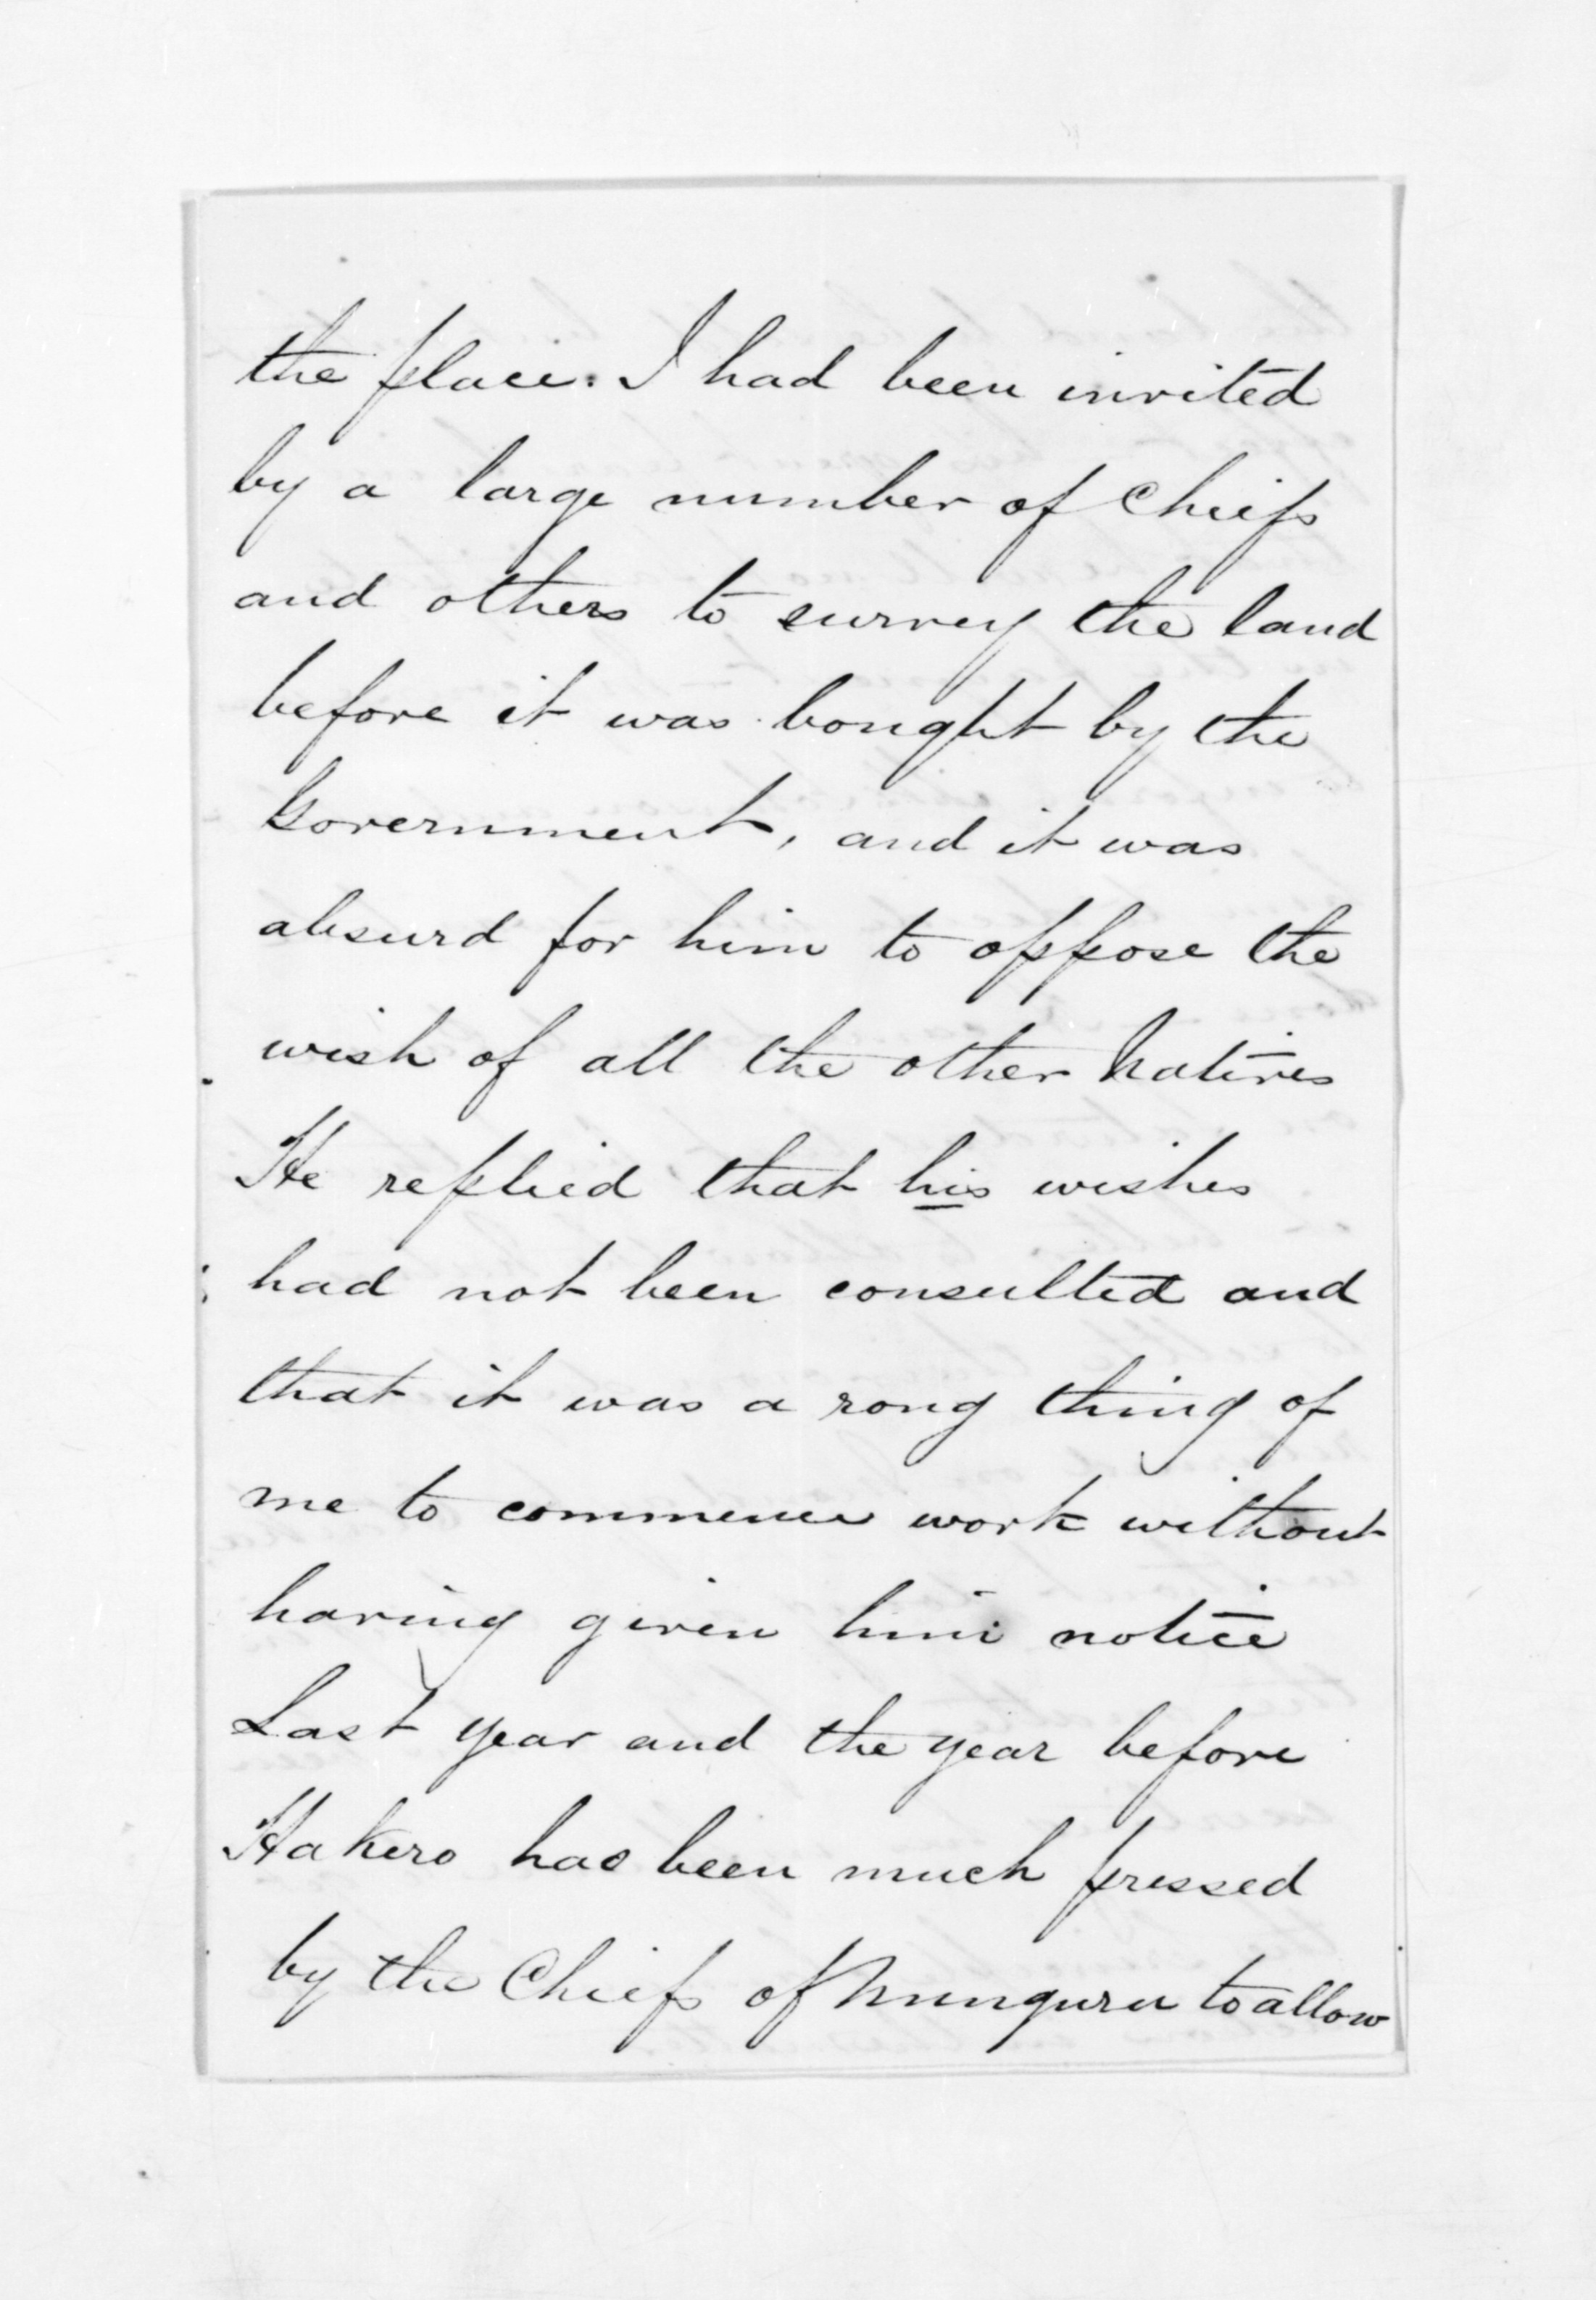 the place. I had been invited
by a large number of Chiefs
and others to survey the land
before it was bought by the
Government, and it was
absurd for him to oppose the
wish of all the other Natives
He replied that his wishes
had not been consulted and
that it was a rong thing of
me to commence work without
having given him notice
Last year and the year before
Hakero has been much pressed
by the Chiefs of Munguru to allow